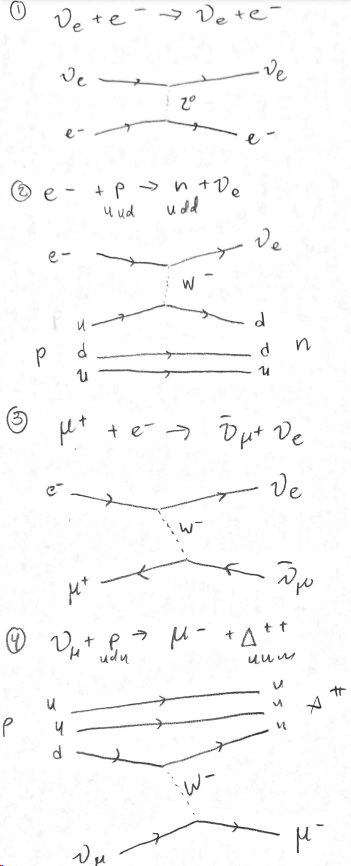 ① νe + e⁻ → νe + e⁻
νe νe
Z⁰
e⁻ e⁻
② e⁻ + p → n + νe
uud udd
e⁻ νe
W⁻
u d
p d d n
u u
③ μ⁺ + e⁻ → ν̄μ + νe
e⁻ νe
W⁻
μ⁺ ν̄μ
④ νμ + p → μ⁻ + Δ⁺⁺
udu uuu
u u
p u u Δ⁺⁺
d u
W⁻
νμ μ⁻